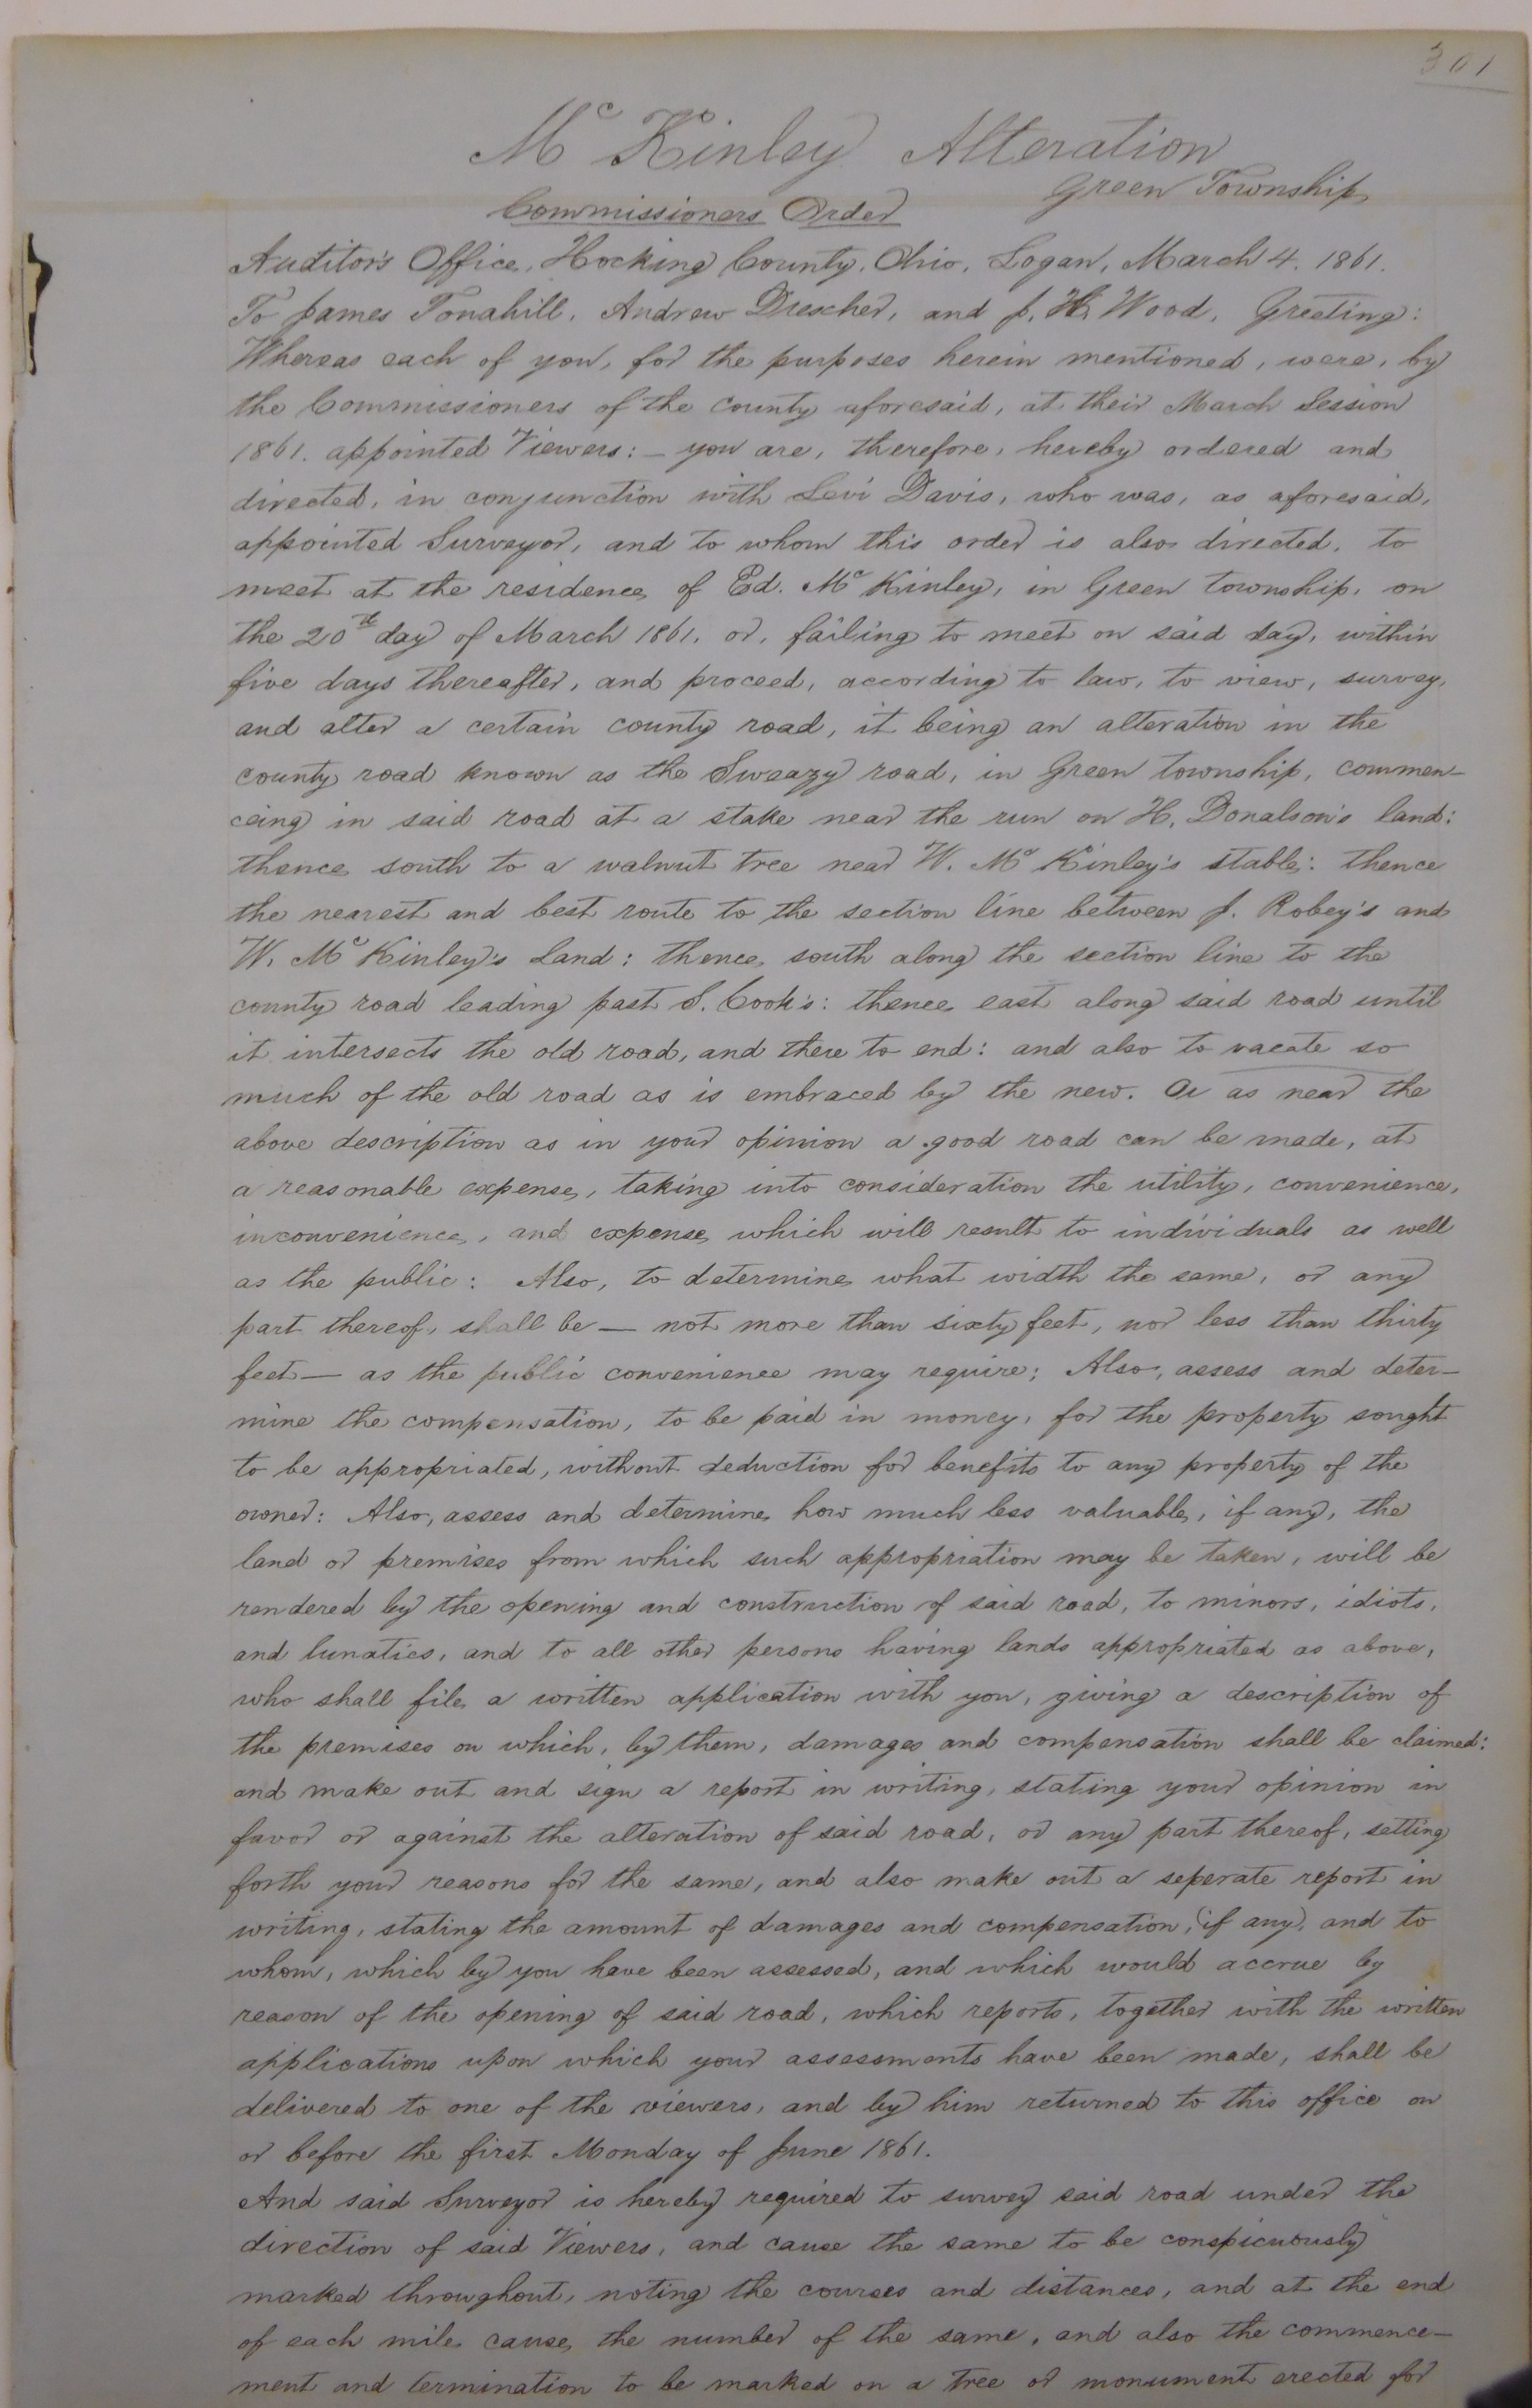 301
Mc Kinley Alteration
Green Township
Commissioners Order
Auditor's Office, Hocking County, Ohio, Logan, March 4. 1861.
To James Tonahill, Andrew Drescher, and J. H. Wood, Greeting:
Whereas each of you, for the purposes herein mentioned, were, by
the Commissioners of the county aforesaid, at their March Session
1861. appointed Viewers: – you are, therefore, hereby ordered and
directed, in conjunction with Levi Davis, who was, as aforesaid,
appointed Surveyor, and to whom this order is also directed, to
meet at the residence of Ed. Mc Kinley, in Green township, on
the 20th day of March 1861, or, failing to meet on said day, within
five days thereafter, and proceed, according to law, to view, survey,
and alter a certain county road, it being an alteration in the
county road known as the Sweazy road, in Green township, commen–
ceing in said road at a stake near the run on H. Donalson's land:
thence south to a walnut tree near W. Mc Kinley's stable: thence
the nearest and best route to the section line between J. Robey's and
W. Mc Kinley's Land: thence south along the section line to the
county road leading past S. Cook's: thence east along said road until
it intersects the old road, and there to end: and also to vacate so
much of the old road as is embraced by the new. Or as near the
above description as in your opinion a good road can be made, at
a reasonable expense, taking into consideration the utility, convenience,
inconvenience, and expense which will result to individuals as well
as the public: Also, to determine what width the same, or any
part thereof, shall be — not more than sixty feet, nor less than thirty
feet — as the public convenience may require; Also, assess and deter–
mine the compensation, to be paid in money, for the property sought
to be appropriated, without deduction for benefits to any property of the
owner: Also, assess and determine how much less valuable, if any, the
land or premises from which such appropriation may be taken, will be
rendered by the opening and construction of said road, to minors, idiots,
and lunatics, and to all other persons having lands appropriated as above,
who shall file a written application with you, giving a description of
the premises on which, by them, damages and compensation shall be claimed:
and make out and sign a report in writing, stating your opinion in
favor or against the alteration of said road, or any part thereof, setting
forth your reasons for the same, and also make out a seperate report in
writing, stating the amount of damages and compensation, (if any), and to
whom, which by you have been assessed, and which would accrue by
reason of the opening of said road, which reports, together with the written
applications upon which your assessments have been made, shall be
delivered to one of the viewers, and by him returned to this office on
or before the first Monday of June 1861.
And said Surveyor is hereby required to survey said road under the
direction of said Viewers, and cause the same to be conspicuously
marked throughout, noting the courses and distances, and at the end
of each mile cause the number of the same, and also the commence–
ment and termination to be marked on a tree or monument erected for